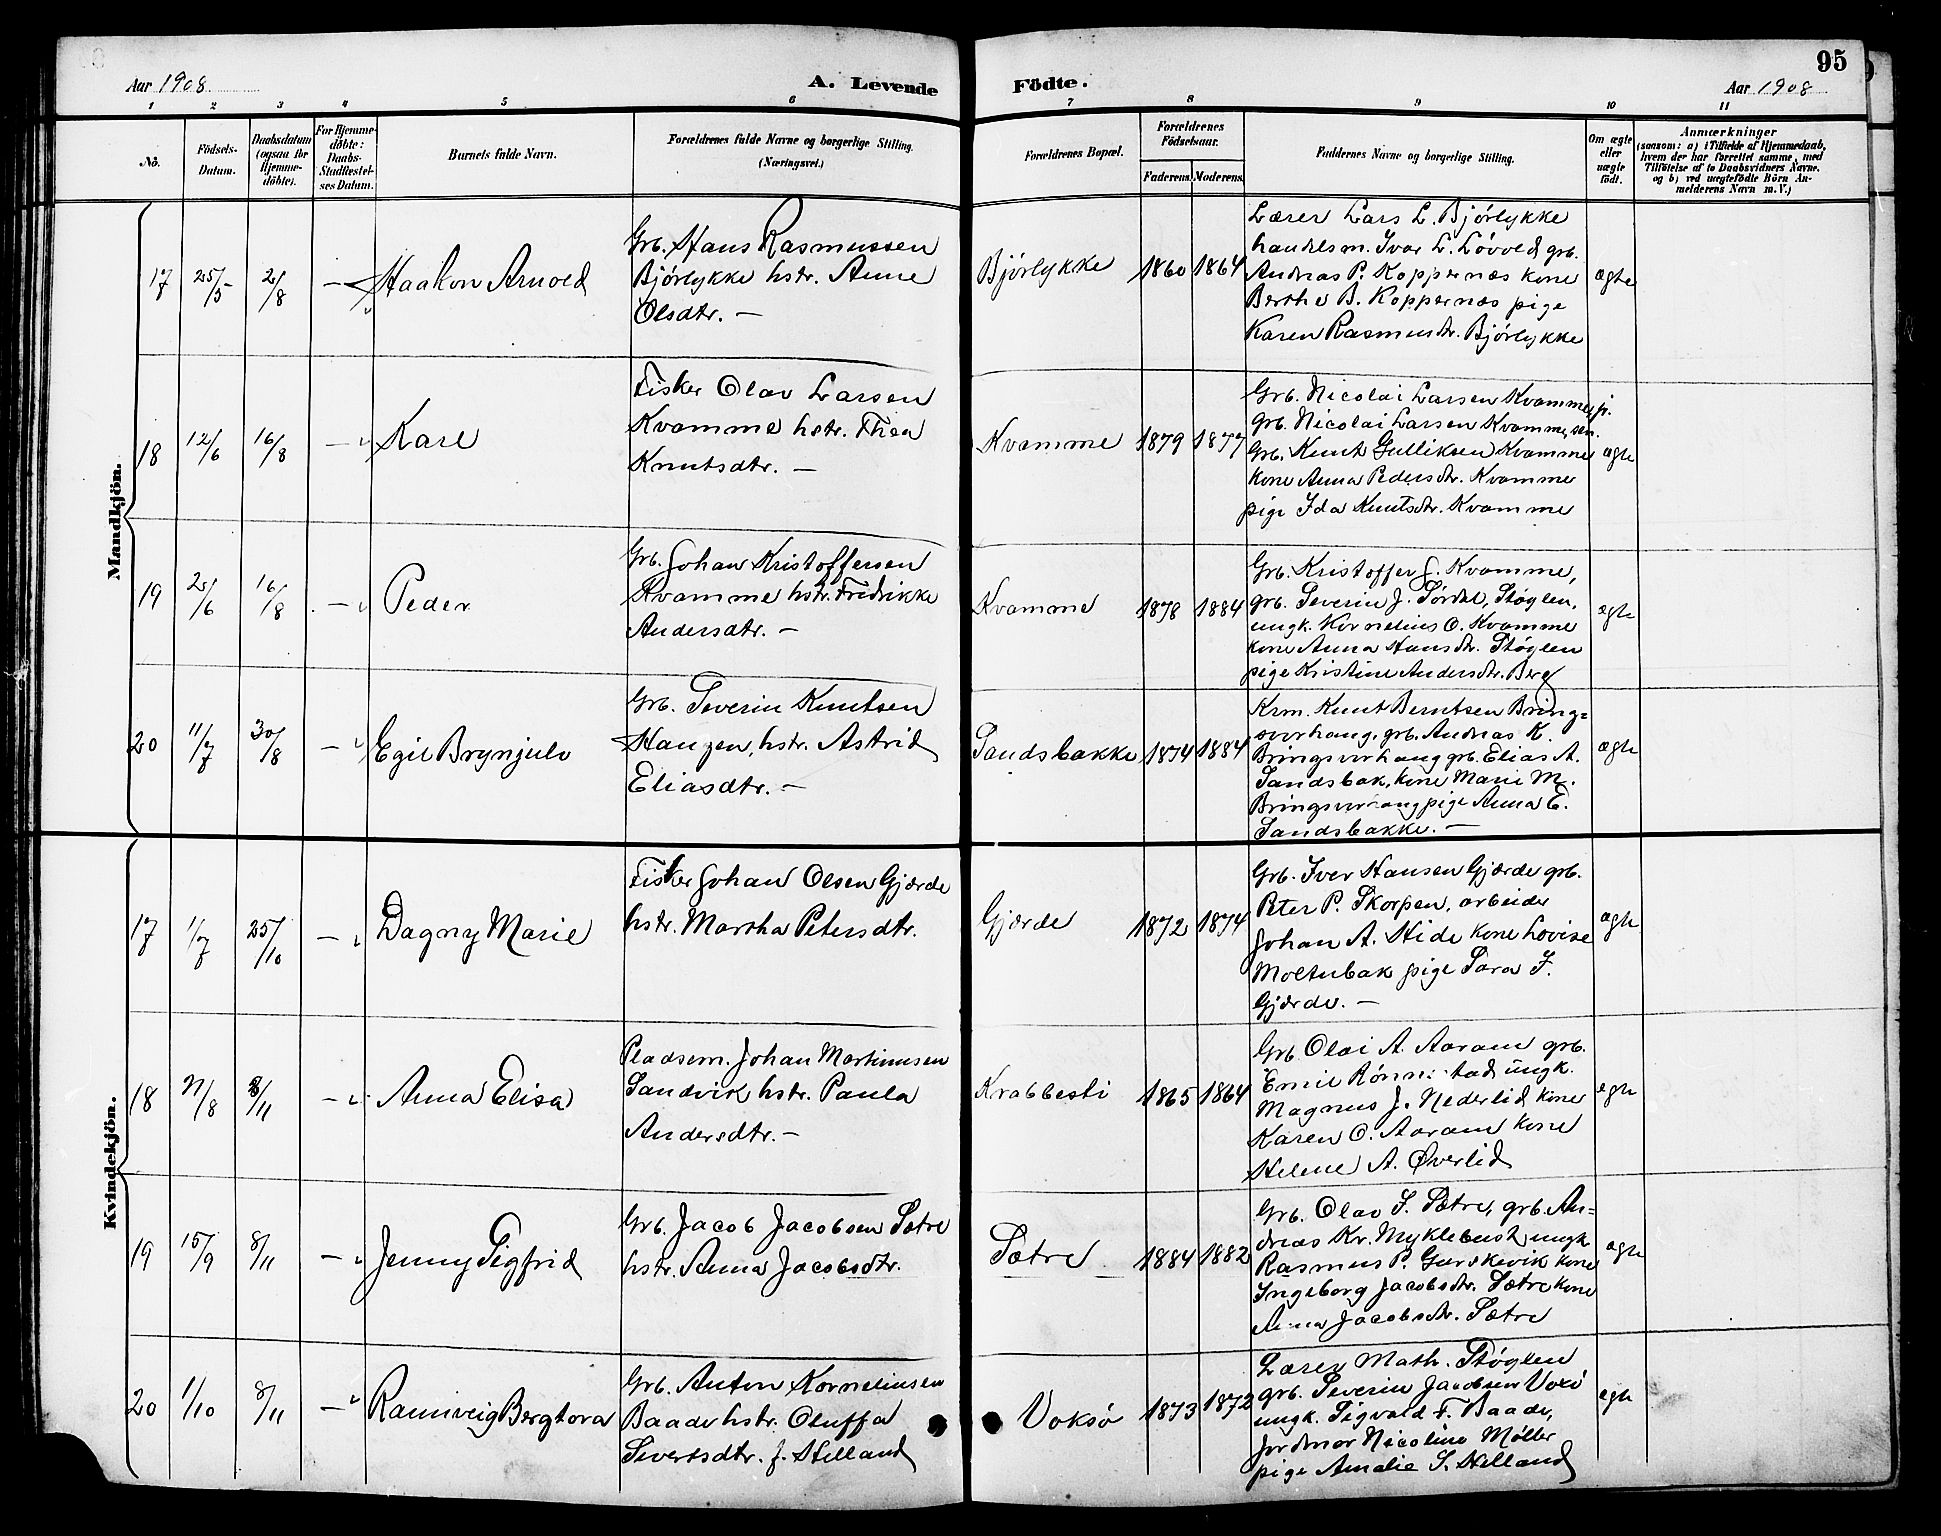 95
Aar 1908
A. Levende Födte.
Aar 1908
1 2 3 4 5 6 7 8 9 10 11
No.
Födsels-
Datum.
Daabsdatum
(ogsaa for
Hjemme-
döbte).
For Hjemme-
döbte:
Daabs-
Stadfestel-
ses Datum.
Barnets fulde Navn.
Forældrenes fulde Navne og borgerlige Stilling.
(Næringsvei.)
Forældrenes Bopæl.
Forældrenes
Födselsaar.
Faderens. Moderens.
Faddernes Navne og borgerlige Stilling.
Om ægte
eller
uægte
födt.
Anmærkninger
(saasom: a) i Tilfælde af Hjemmedaab,
hvem der har forrettet samme, med
Tilföielse af to Daabsvidners Navne.
og b) ved uægtefödte Börn An-
melderens Navn m. V.)
Mandkjön.
17 25/5 2/8 — Haakon Arnold
Grb. Hans Rasmussen
Bjórlykke hstr. Anne
Olsdtr. —
Bjórlykke 1860 1864
Lærer Lars L. Bjórlykke
handelsm. Ivar L. Lóvold grb.
Andreas P. Koppernæs kone
Berthe B. Koppernæs pige
Karen Rasmusdtr. Bjórlykke
ægte
18 12/6 16/8 — Kare
Fisker Olav Larsen
Kvamme hstr. Thea
Knutsdtr. —
Kvamme 1879 1877
Grb. Nicolai Larsen Kvamme, jr.
grb. Nicolai Larsen Kvamme, sen.
Grb. Knut Gulliksen Kvamme
kone Anna Pedersdtr. Kvamme
pige Ida Knutsdtr. Kvamme
ægte
19 2/6 16/8 — Peder
Grb. Johan Kristoffersen
Kvamme hstr. Fredrikke
Andersdtr. —
Kvamme 1878 1884
Grb. Kristoffer J. Kvamme,
grb. Severin J. Sørdal, Støylen,
ungk. Kornelius O. Kvamme
kone Anna Hansdtr. Støylen
pige Kristine Andersdtr. Berg
ægte
20 11/7 30/8 — Egil Brynjulv
Grb. Severin Knutsen
Haugen, hstr. Astrid
Eliasdtr. —
Sandsbakke 1874 1884
Krm. Knut Berntsen Bring=
svorhaug, grb. Andreas K.
Bringsvorhaug grb. Elias A.
Sandsbak, kone Marie M.
Bringsvorhaug pige Anna E.
Sandsbakke. —
ægte
Kvindekjön.
17 1/7 25/10 — Dagny Marie
Fisker Johan Olsen Gjærde
hstr. Martha Petersdtr.
Gjerde 1872 1874
Grb. Iver Hansen Gjærde grb.
Peter P. Skorpen, arbeider
Johan A. Hide kone Lovise
Moltubak pige Sara I.
Gjærde. —
ægte
18 21/8 8/11 — Anna Elisa
Pladsem. Johan Martinusen
Sandvik hstr. Paula
Andersdtr. —
Krabbesti 1865 1864
Grb. Olai A. Aaram grb.
Emil Rönnestad ungk.
Magnus J. Nederlid kone
Karen O. Aaram kone
Helene A. Øverlid
ægte
19 15/9 8/11 — Jenny Sigfrid
Grb. Jacob Jacobsen Sætre
hstr. Anna Jacobsdtr.
Sætre 1884 1882
Grb. Olav S. Sætre, grb. An=
dreas Kr. Myklebust, ungk.
Rasmus P. Gurskevik kone
Ingeborg Jacobsdtr. Sætre kone
Anna Jacobsdtr. Sætre
ægte
20 1/10 8/11 — Rannveig Bergtora
Grb. Anton Kornelinsen
Baade hstr. Oluffa
Sivertsdtr. f. Helland
Voksø 1873 1872
Lærer Math. Støylen
grb. Severin Jacobsen Voksö
ungk. Sigvald F. Baade,
jordmor Nicoline Möller
pige Amalie S. Helland
ægte